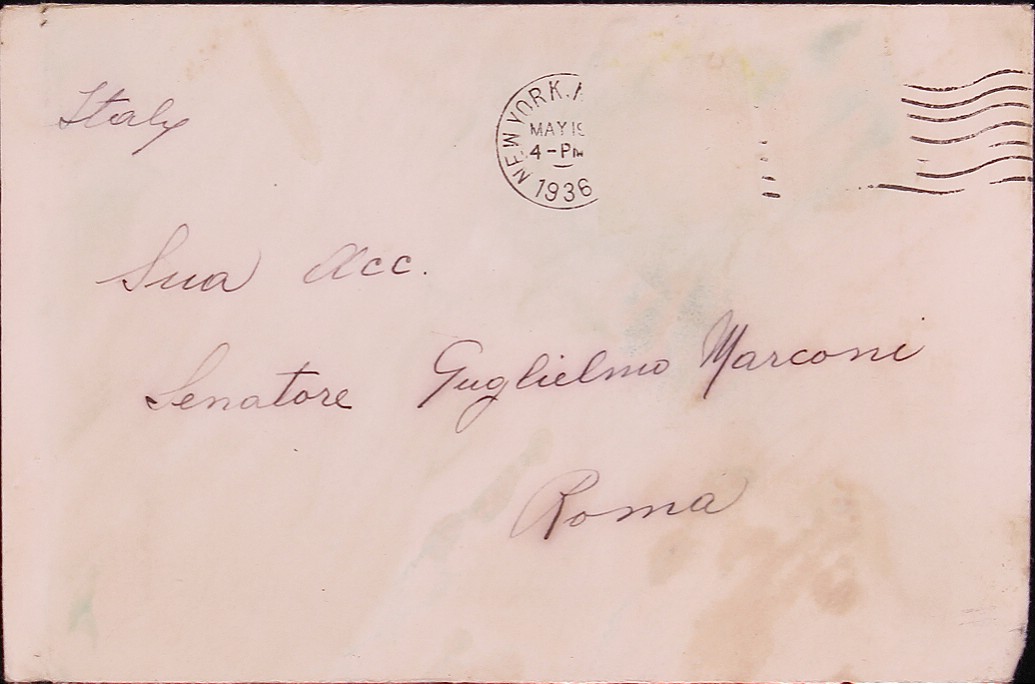 Italy
NEW YORK, N
MAY 19
4-PM
1936
Sua Acc.
Senatore Guglielmo Marconi
Roma